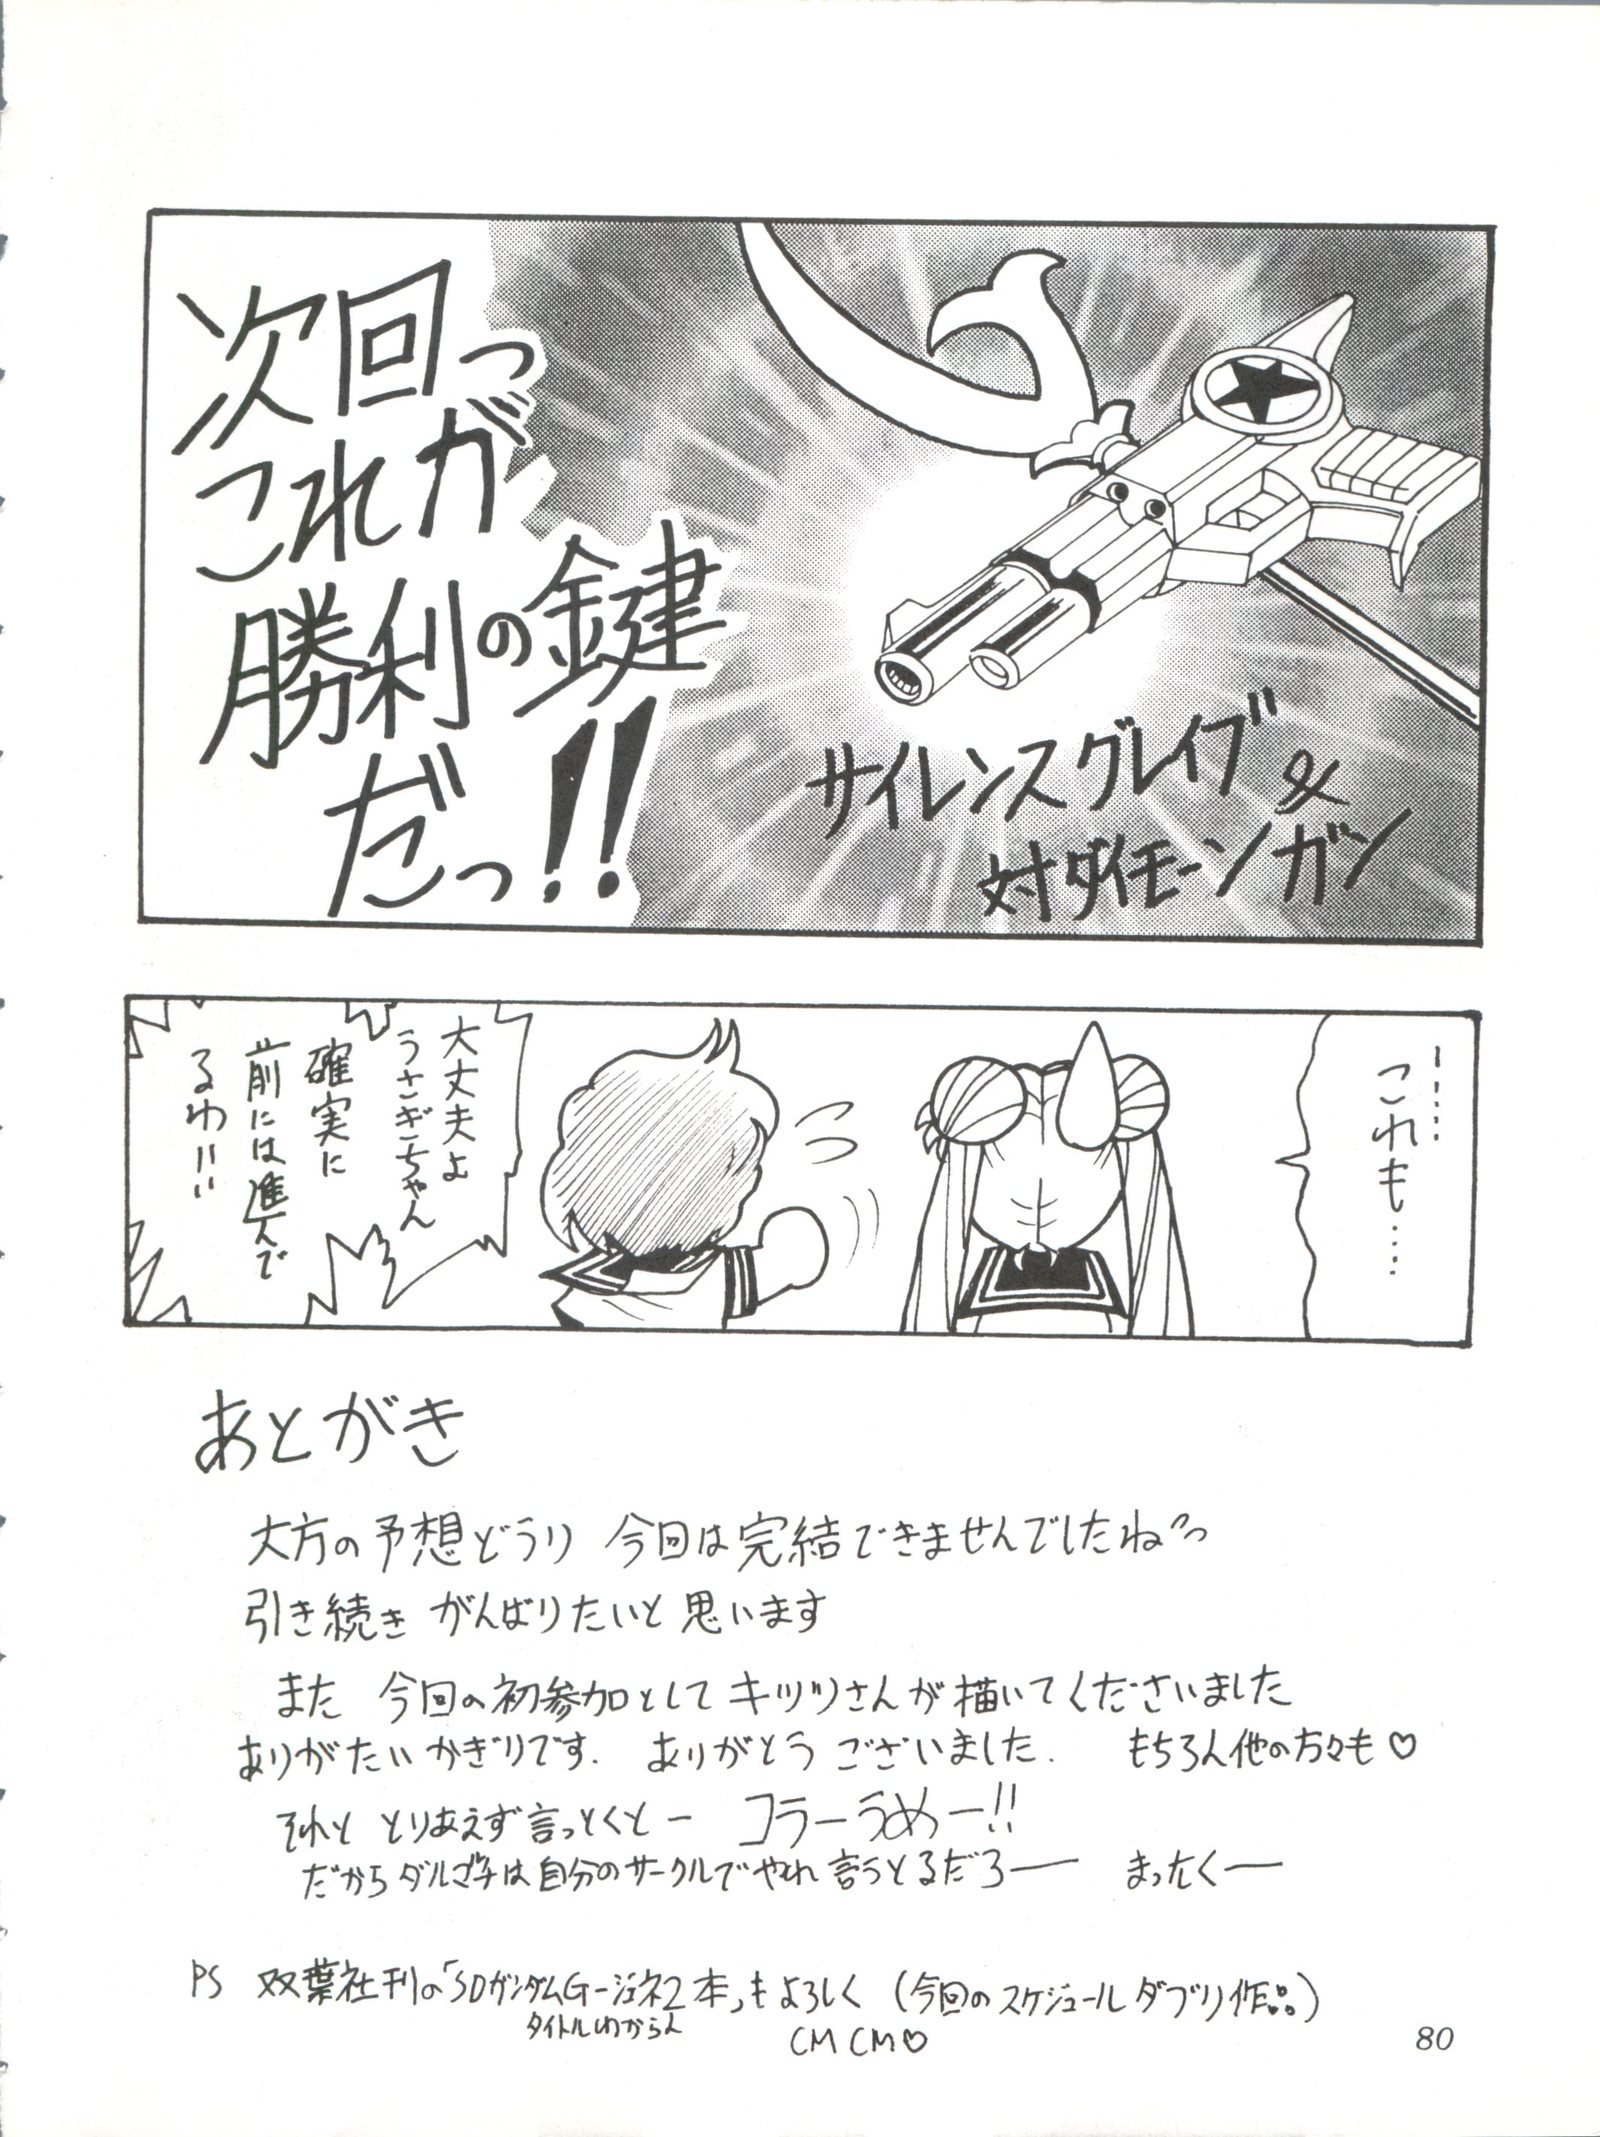 次回っ
これが
勝利の鍵
だっ!!
サイレンスグレイブ
&
対ダイモーンガン
……これも……
大丈夫よ
うさぎちゃん
確実に
前には進んで
るわ!!
あとがき
大方の予想どうり 今回は完結できませんでしたねっ
引き続き がんばりたいと思います
また 今回の初参加としてキツツさんが描いてくださいました
ありがたいかぎりです. ありがとうございました. もちろん他の方々も♡
それと とりあえず言っとくとー コラーうめー!!
だからダルマチは自分のサークルでやれ言うとるだろー まったくー
PS 双葉社刊の「SDガンダムGージェネ2本」もよろしく (今回のスケジュールダブリ作品)
タイトルわからん
CM CM♡
80